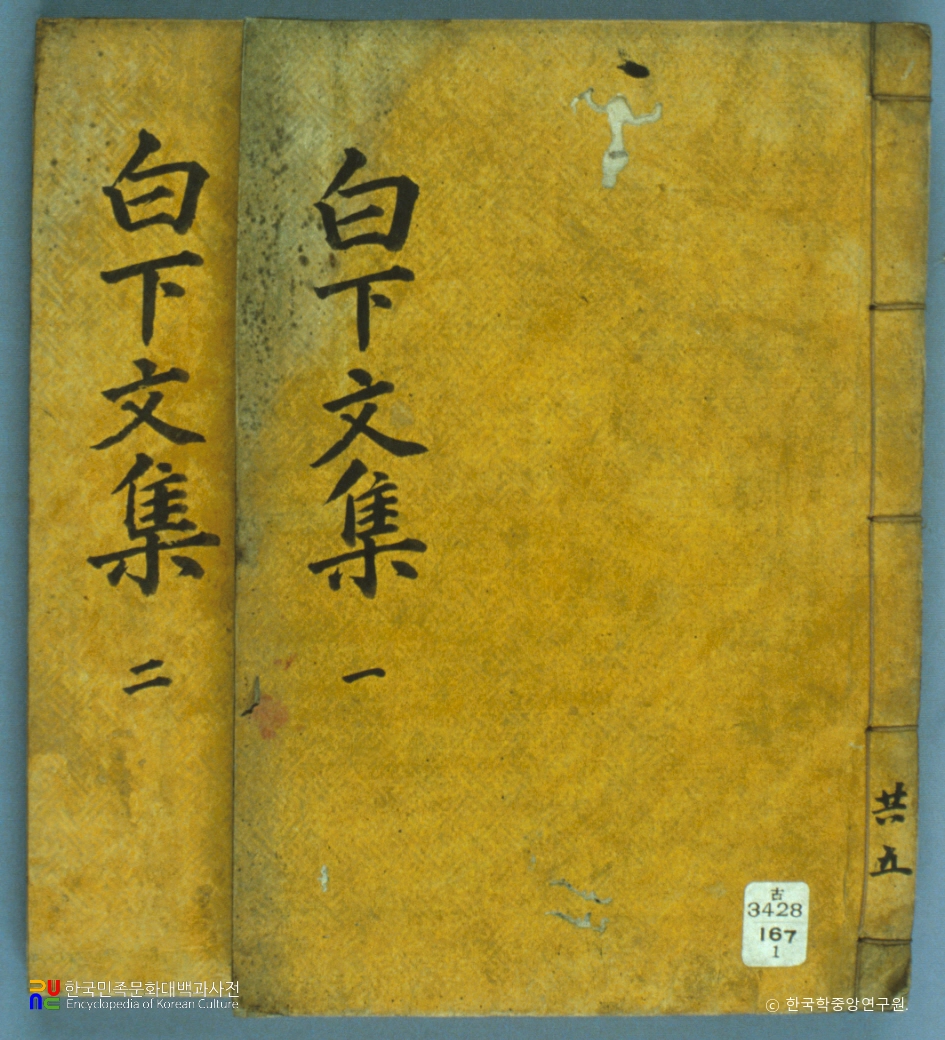 白下文集
一
白下文集
二
共五
古
3428
167
1
한국민족문화대백과사전
Encyclopedia of Korean Culture
ⓒ 한국학중앙연구원.